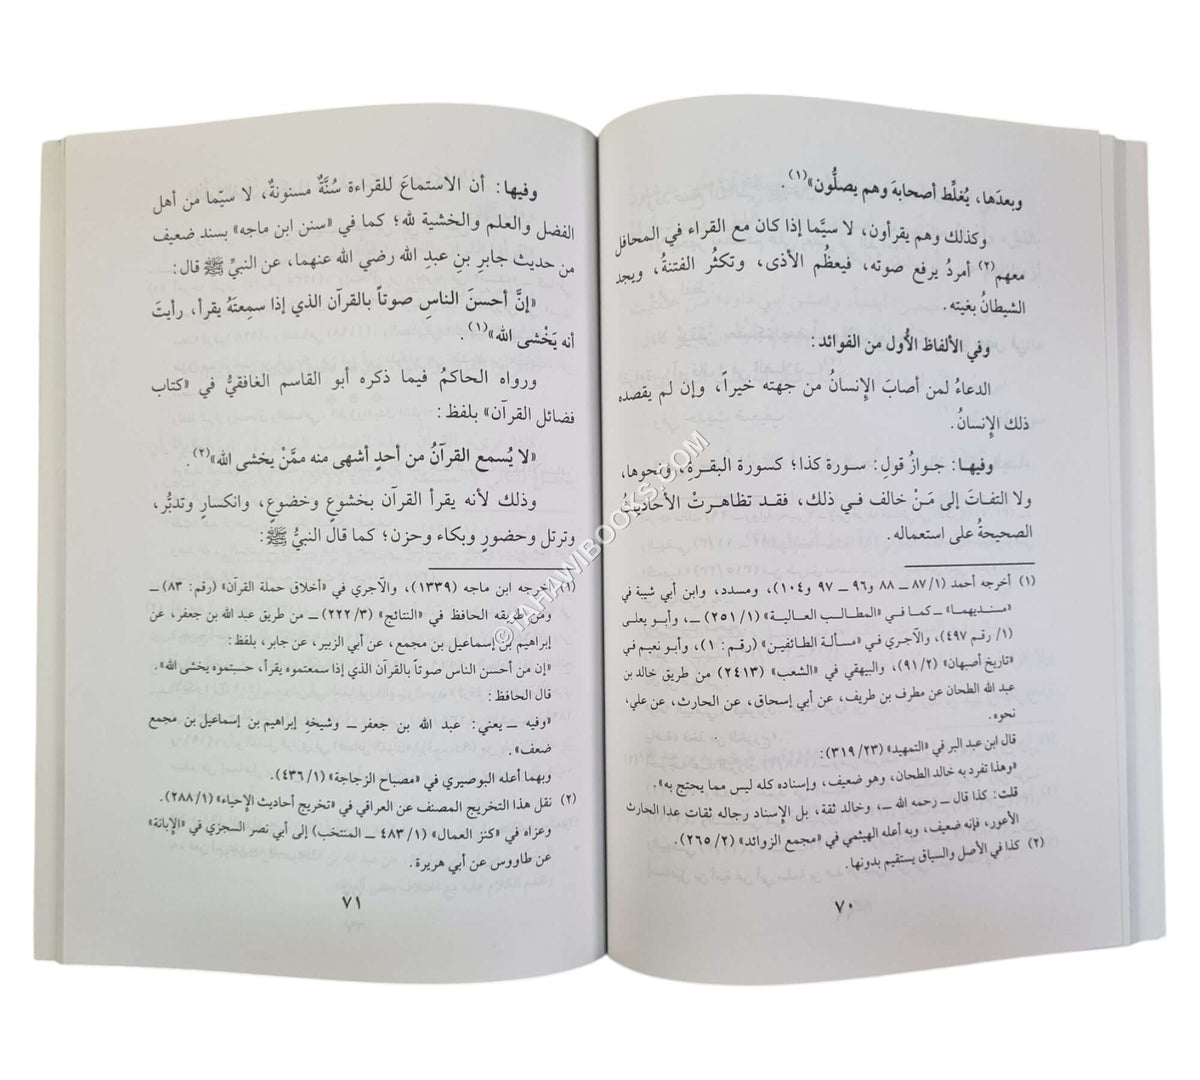 وبعدَها، يُغلِّط أصحابهَ وهم يصلُّون»(١).
وكذلك وهم يقرأون، لا سيَّما إذا كان مع القراء في المحافل
معهم(٢) أمردُ يرفع صوته، فيعظُم الأذى، وتكثُر الفتنةُ، ويجد
الشيطانُ بغيته.
وفي الألفاظ الأُول من الفوائد:
الدعاءُ لمن أصابَ الإنسانُ من جهته خيراً، وإن لم يقصده
ذلك الإنسانُ.
وفيها: جوازُ قولِ: سورة كذا؛ كسورة البقرةِ، ونحوها،
ولا التفاتَ إلى مَنْ خالف في ذلك، فقد تظاهرتْ الأحاديثُ
الصحيحةُ على استعماله.
(١) أخرجه أحمد (١/ ٨٧ ــ ٨٨ و٩٦ ــ ٩٧ و١٠٤)، ومسدد، وابن أبي شيبة في
«مسنديهما» ــ كما في «المطالب العالية» (١/ ٢٥١) ــ، وأبو يعلى
(١/ رقم ٤٩٧)، والآجري في «مسألة الطائفين» (رقم: ١)، وأبو نعيم في
«تاريخ أصبهان» (٢/ ٩١)، والبيهقي في «الشعب» (٢٤١٣) من طريق خالد بن
عبد الله الطحان عن مطرف بن طريف، عن أبي إسحاق، عن الحارث، عن علي،
نحوه.
قال ابن عبد البر في «التمهيد» (٢٣/ ٣١٩):
«وهذا تفرد به خالد الطحان، وهو ضعيف، وإسناده كله ليس مما يحتج به».
قلت: كذا قال ــ رحمه الله ــ، وخالد ثقة، بل الإسناد رجاله ثقات عدا الحارث
الأعور، فإنه ضعيف، وبه أعله الهيثمي في «مجمع الزوائد» (٢/ ٢٦٥).
(٢) كذا في الأصل والسياق يستقيم بدونها.
٧٠
وفيها: أن الاستماعَ للقراءة سُنَّةٌ مسنونةٌ، لا سيّما من أهل
الفضل والعلم والخشية لله؛ كما في «سنن ابن ماجه» بسند ضعيف
من حديث جابرِ بنِ عبدِ الله رضي الله عنهما، عن النبيِّ ﷺ قال:
«إنَّ أحسنَ الناسِ صوتاً بالقرآن الذي إذا سمِعتَهُ يقرأ، رأيتَ
أنه يَخْشى الله»(١).
ورواه الحاكمُ فيما ذكره أبو القاسم الغافقيُّ في «كتاب
فضائل القرآن» بلفظ:
«لا يُسمع القرآنُ من أحدٍ أشهى منه ممَّنْ يخشى الله»(٢).
وذلك لأنه يقرأ القرآن بخشوعٍ وخضوعٍ، وانكسارٍ وتدبُّر،
وترتل وحضورٍ وبكاء وحزن؛ كما قال النبيُّ ﷺ:
(١) أخرجه ابن ماجه (١٣٣٩)، والآجري في «أخلاق حملة القرآن» (رقم: ٨٣) ــ
ومن طريقه الحافظ في «النتائج» (٣/ ٢٢٢) ــ من طريق عبد الله بن جعفر، عن
إبراهيم بن إسماعيل بن مجمع، عن أبي الزبير، عن جابر، بلفظ:
«إن من أحسن الناس صوتاً بالقرآن الذي إذا سمعتموه يقرأ، حسبتموه يخشى الله».
قال الحافظ:
«وفيه ــ يعني: عبد الله بن جعفر ــ وشيخهِ إبراهيم بن إسماعيل بن مجمع
ضعف».
وبهما أعله البوصيري في «مصباح الزجاجة» (١/ ٤٣٦).
(٢) نقل هذا التخريج المصنف عن العراقي في «تخريج أحاديث الإحياء» (١/ ٢٨٨).
وعزاه في «كنز العمال» (١/ ٤٨٣ ــ المنتخب) إلى أبي نصر السجزي في «الإبانة»
عن طاووس عن أبي هريرة.
٧١
©TAHAWIBOOKS.COM